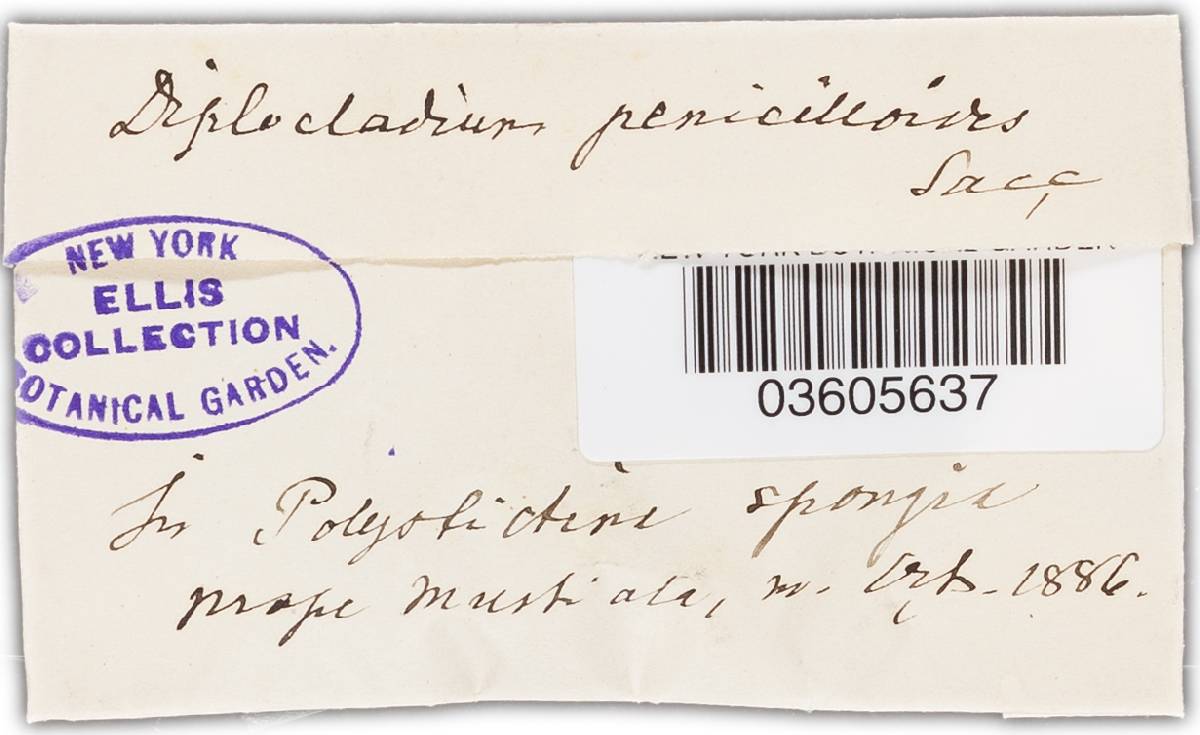 Diplocladium penicilloides
Sacc,
NEW YORK
ELLIS
COLLECTION
BOTANICAL GARDEN.
NEW YORK BOTANICAL GARDEN
03605637
In Polysticti spongia
prope Mustiala, m. Sept. 1886.